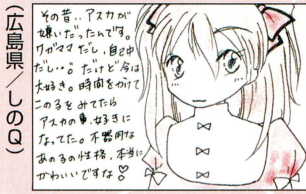 その昔、アスカが
嫌いだったんです。
ワガママだし、自己中
だし…。だけど今は
大好き。時間をかけて
この子をみてたら
アスカの事、好きに
なってた。不器用な
あの子の性格、本当に
かわいいですな♡
(広島県/しのQ)